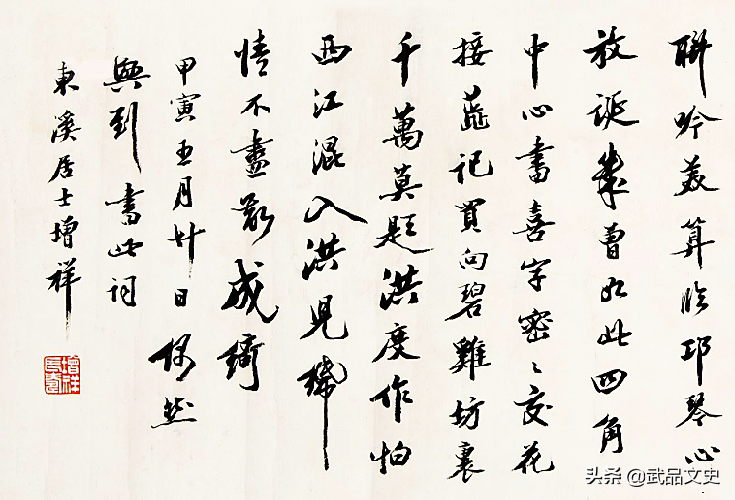 聯吟羡算臨邛琴心
放誕幾曾如此四角
中心書喜字密〻交花
接蕋記買向碧雞坊裏
千萬莫題洪度作怕
西江混入洪見
情不盡前成
甲寅五月廿日偶然
興到書此詞
東溪居士增祥
增祥
头条 @武品文史